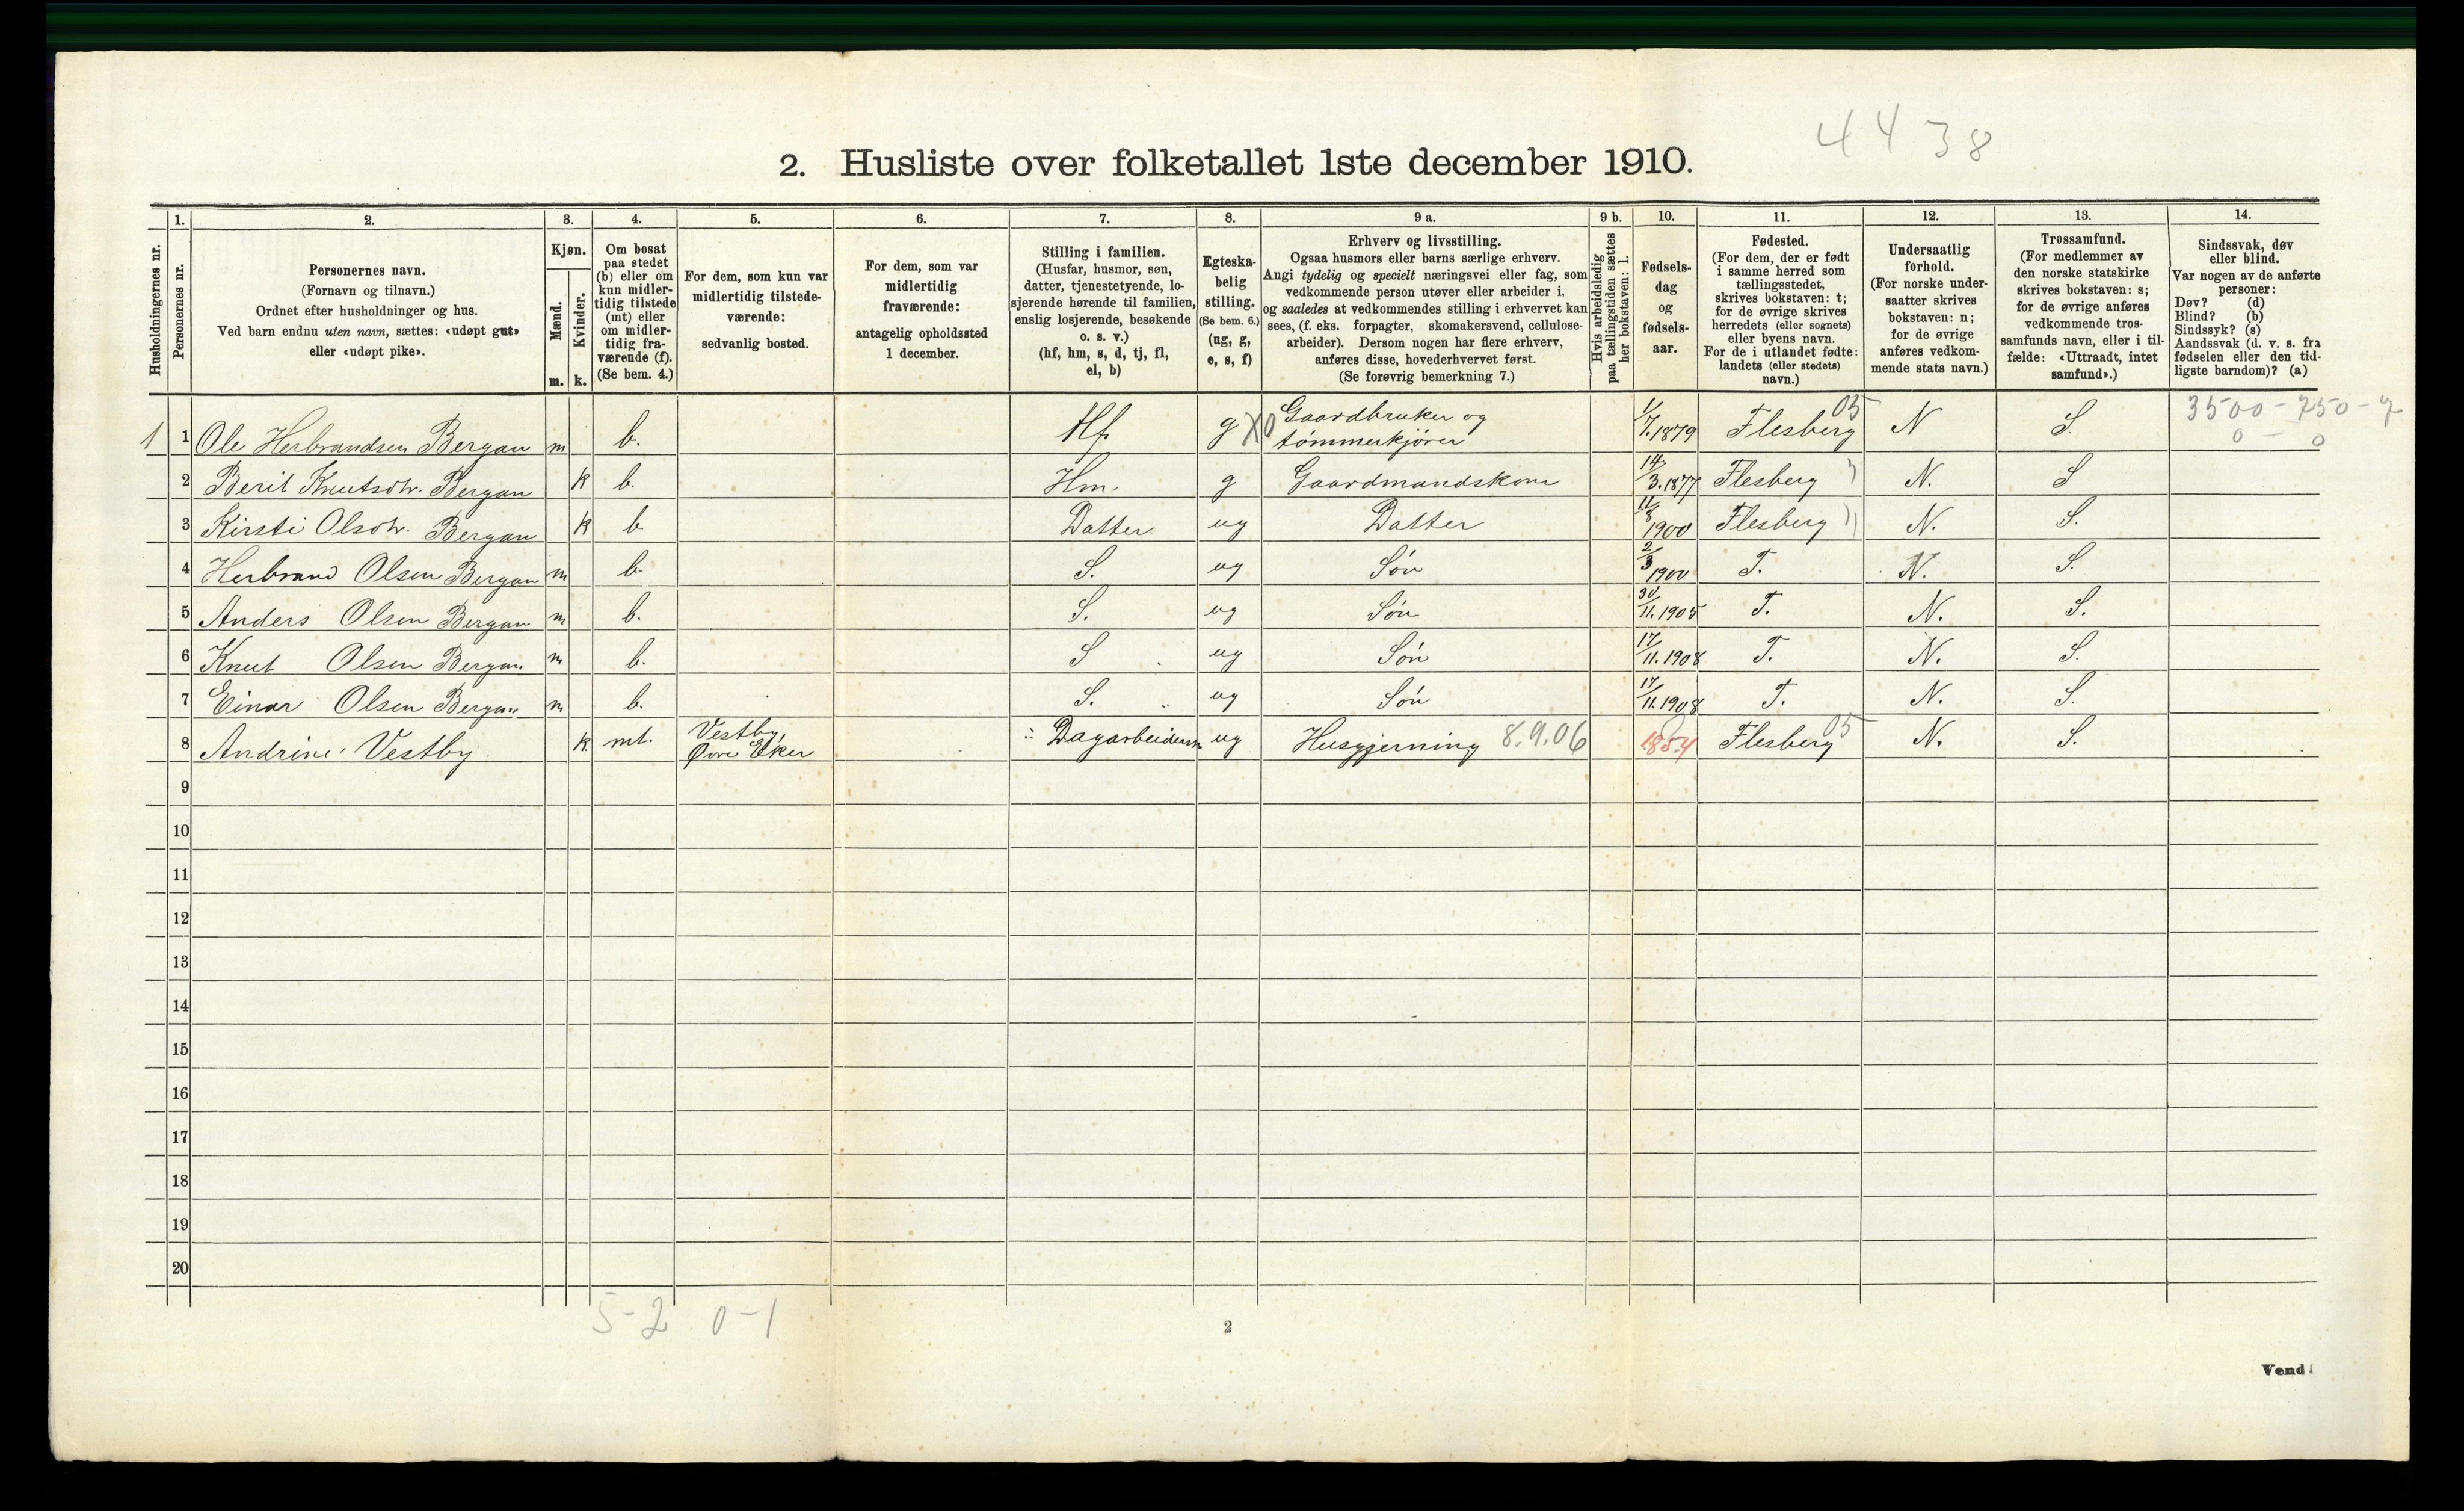 4438
2. Husliste over folketallet 1ste december 1910.
Husholdningernes nr.
1.
Personernes nr.
2.
Personernes navn.
(Fornavn og tilnavn.)
Ordnet efter husholdninger og hus.
Ved barn endnu uten navn, sættes: «udøpt gut»
eller «udøpt pike».
3.
Kjøn.
Mænd.
m.
Kvinder.
k.
4.
Om bosat
paa stedet
(b) eller om
kun midler-
tidig tilstede
(mt) eller
om midler-
tidig fra-
værende (f).
(Se bem. 4.)
5.
For dem, som kun var
midlertidig tilstede-
værende:
sedvanlig bosted.
6.
For dem, som var
midlertidig
fraværende:
antagelig opholdssted
1 december.
7.
Stilling i familien.
(Husfar, husmor, søn,
datter, tjenestetyende, lo-
sjerende hørende til familien,
enslig losjerende, besøkende
o. s. v.)
(hf, hm, s, d, tj, fl,
el, b)
8.
Egteska-
belig
stilling.
(Se bem. 6.)
(ug, g,
e, s, f)
9 a.
Erhverv og livsstilling.
Ogsaa husmors eller barns særlige erhverv.
Angi tydelig og specielt næringsvei eller fag, som
vedkommende person utøver eller arbeider i,
og saaledes at vedkommendes stilling i erhvervet kan
sees, (f. eks. forpagter, skomakersvend, cellulose-
arbeider). Dersom nogen har flere erhverv,
anføres disse, hovederhvervet først.
(Se forøvrig bemerkning 7.)
9 b.
Hvis arbeidsledig
paa tællingstiden sættes
her bokstaven: l.
10.
Fødsels-
dag
og
fødsels-
aar.
11.
Fødested.
(For dem, der er født
i samme herred som
tællingsstedet,
skrives bokstaven: t;
for de øvrige skrives
herredets (eller sognets)
eller byens navn.
For de i utlandet fødte:
landets (eller stedets)
navn.)
12.
Undersaatlig
forhold.
(For norske under-
saatter skrives
bokstaven: n;
for de øvrige
anføres vedkom-
mende stats navn.)
13.
Trossamfund.
(For medlemmer av
den norske statskirke
skrives bokstaven: s;
for de øvrige anføres
vedkommende tros-
samfunds navn, eller i til-
fælde: «Uttraadt, intet
samfund».)
14.
Sindssvak, døv
eller blind.
Var nogen av de anførte
personer:
Døv? (d)
Blind? (b)
Sindssyk? (s)
Aandssvak (d. v. s. fra
fødselen eller den tid-
ligste barndom)? (a)
1 1 Ole Herbrandsen Bergan m b. Hf. g X0 Gaardbruker og tømmerkjører 1/7.1879 Flesberg 05 N S. 3500-750-7
0 - 0
2 Berit Knutsdtr. Bergan k b. Hm. g Gaardmandskone 14/3.1877 Flesberg N. S
3 Kirsti Olsdtr. Bergan k b. Datter ug Datter 11/8 1900 Flesberg N. S.
4 Herbrand Olsen Bergan m b. S. ug Søn 2/3 1900 T. N. S.
5 Anders Olsen Bergan m b. S. ug Søn 30/11.1905 T. N. S.
6 Knut Olsen Bergan m b. S ug Søn 17/11.1908 T. N. S.
7 Einar Olsen Bergan m b. S. ug Søn 17/11.1908 T. N. S.
8 Andrine Vestby k. mt. Vestby, Øvre Eker Dagarbeiderske ug Husgjerning 8.9.06 1854 Flesberg 05 N. S.
9
10
11
12
13
14
15
16
17
18
19
20
5-2 0-1
2
Vend!